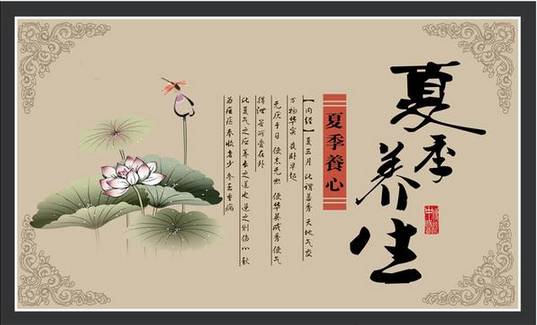 夏季养生
夏季養心
【内经】夏三月 此谓蕃秀 天地气交
万物华实 夜卧早起
无厌于日 使志无怒 使华英成秀 使气
得泄 若所爱在外
此夏气之应 养长之道也 逆之则伤心 秋
为痎疟 奉收者少 冬至重病